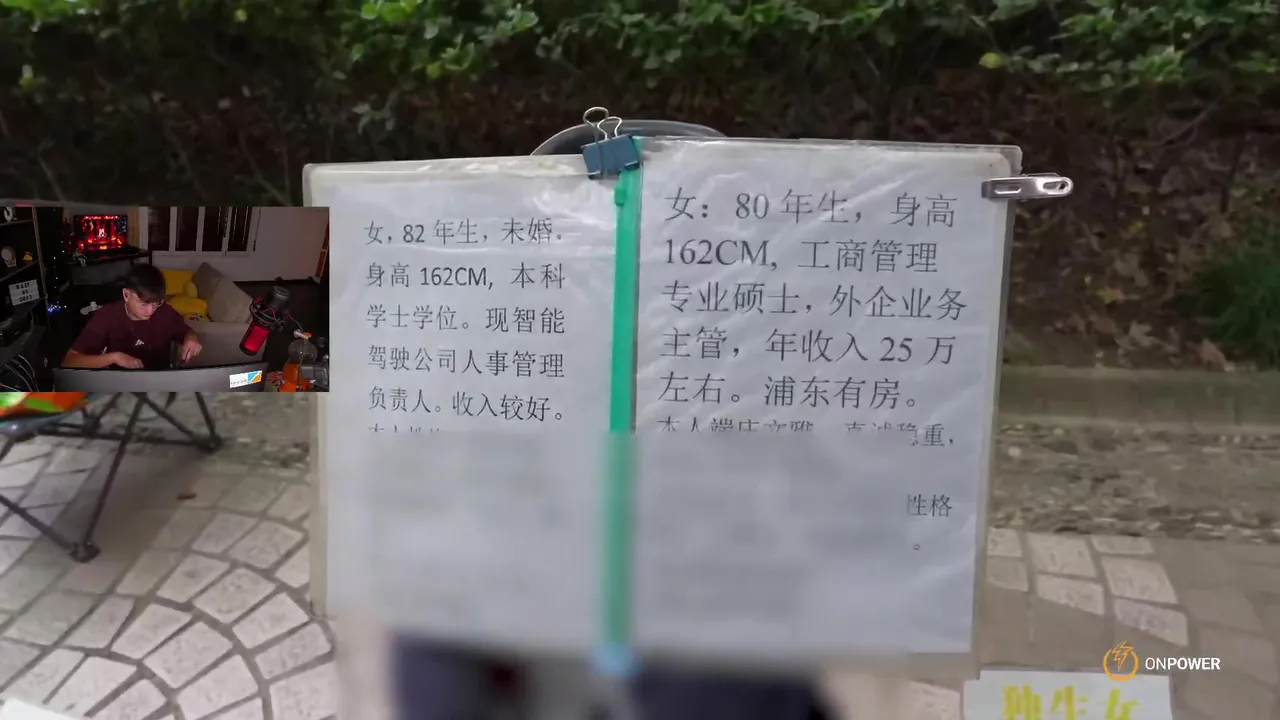 女，82 年生，未婚.
身高 162CM, 本科
学士学位。现智能
驾驶公司人事管理
负责人。收入较好。
女：80 年生，身高
162CM, 工商管理
专业硕士，外企业务
主管，年收入 25 万
左右。浦东有房。
本人端庄文雅，真诚稳重，
性格
。
ONPOWER
独生女